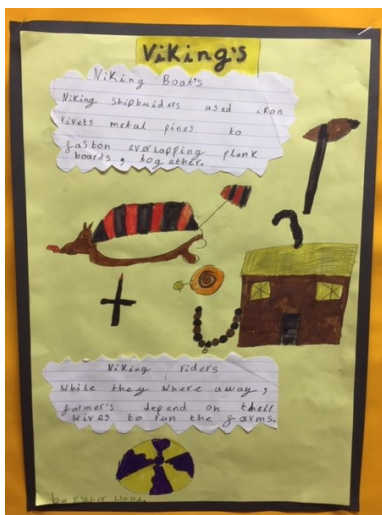 Viking's
Viking Boat's
Viking shipbuiders used iron
rivets metal pines to
faston overlapping plank
boards, together.
Viking riders
While they where away,
farmer's depend on their
wives to run the farms.
by